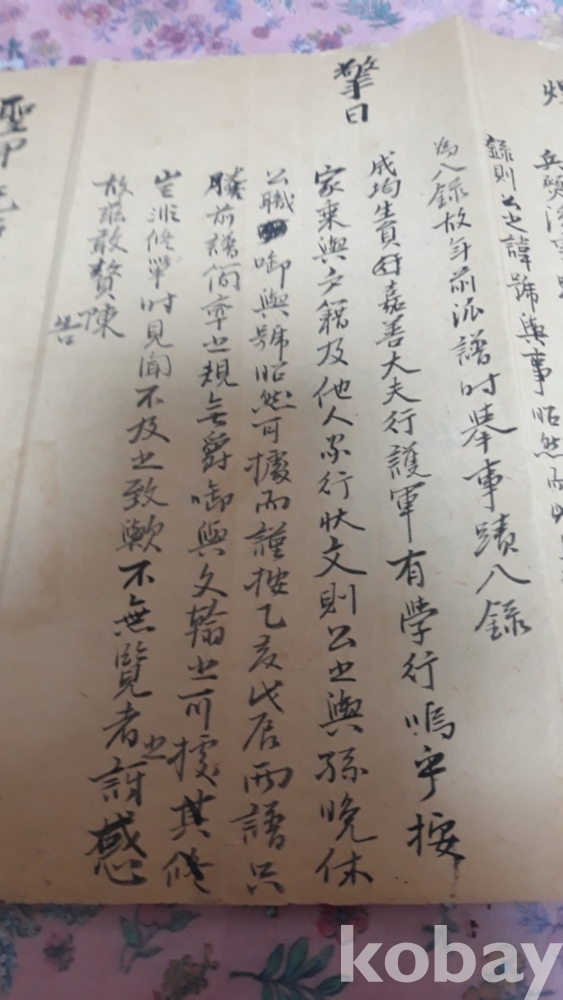 煌
錄則公之諱號與事昭然而
為入錄故年前派譜時峯事蹟入錄
擎日
成均生員 嘉善大夫行護軍有學行嗚乎按
家乘與戶籍及他人家行狀文則公之與孫晩休
公職 啣與號昭然可據而謹按乙亥戊辰兩譜只
勝前譜簡率之規無爵啣與文翰之可據其修
豈非修單時見聞不及之致歟不無覽者之訝感
故玆敢贅陳
告
聖甲
kobay